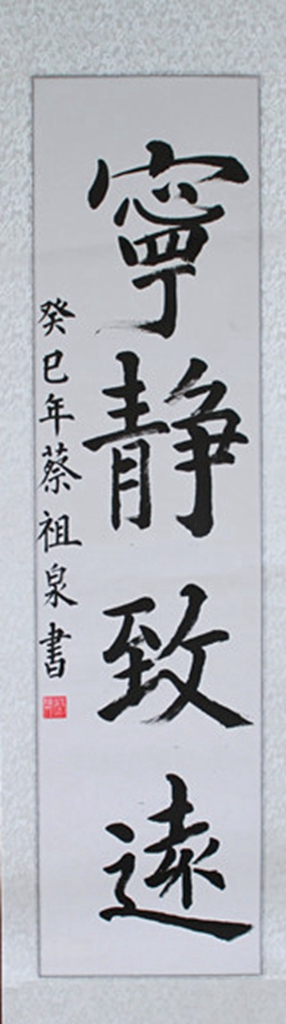 寧静致遠
癸巳年蔡祖泉書